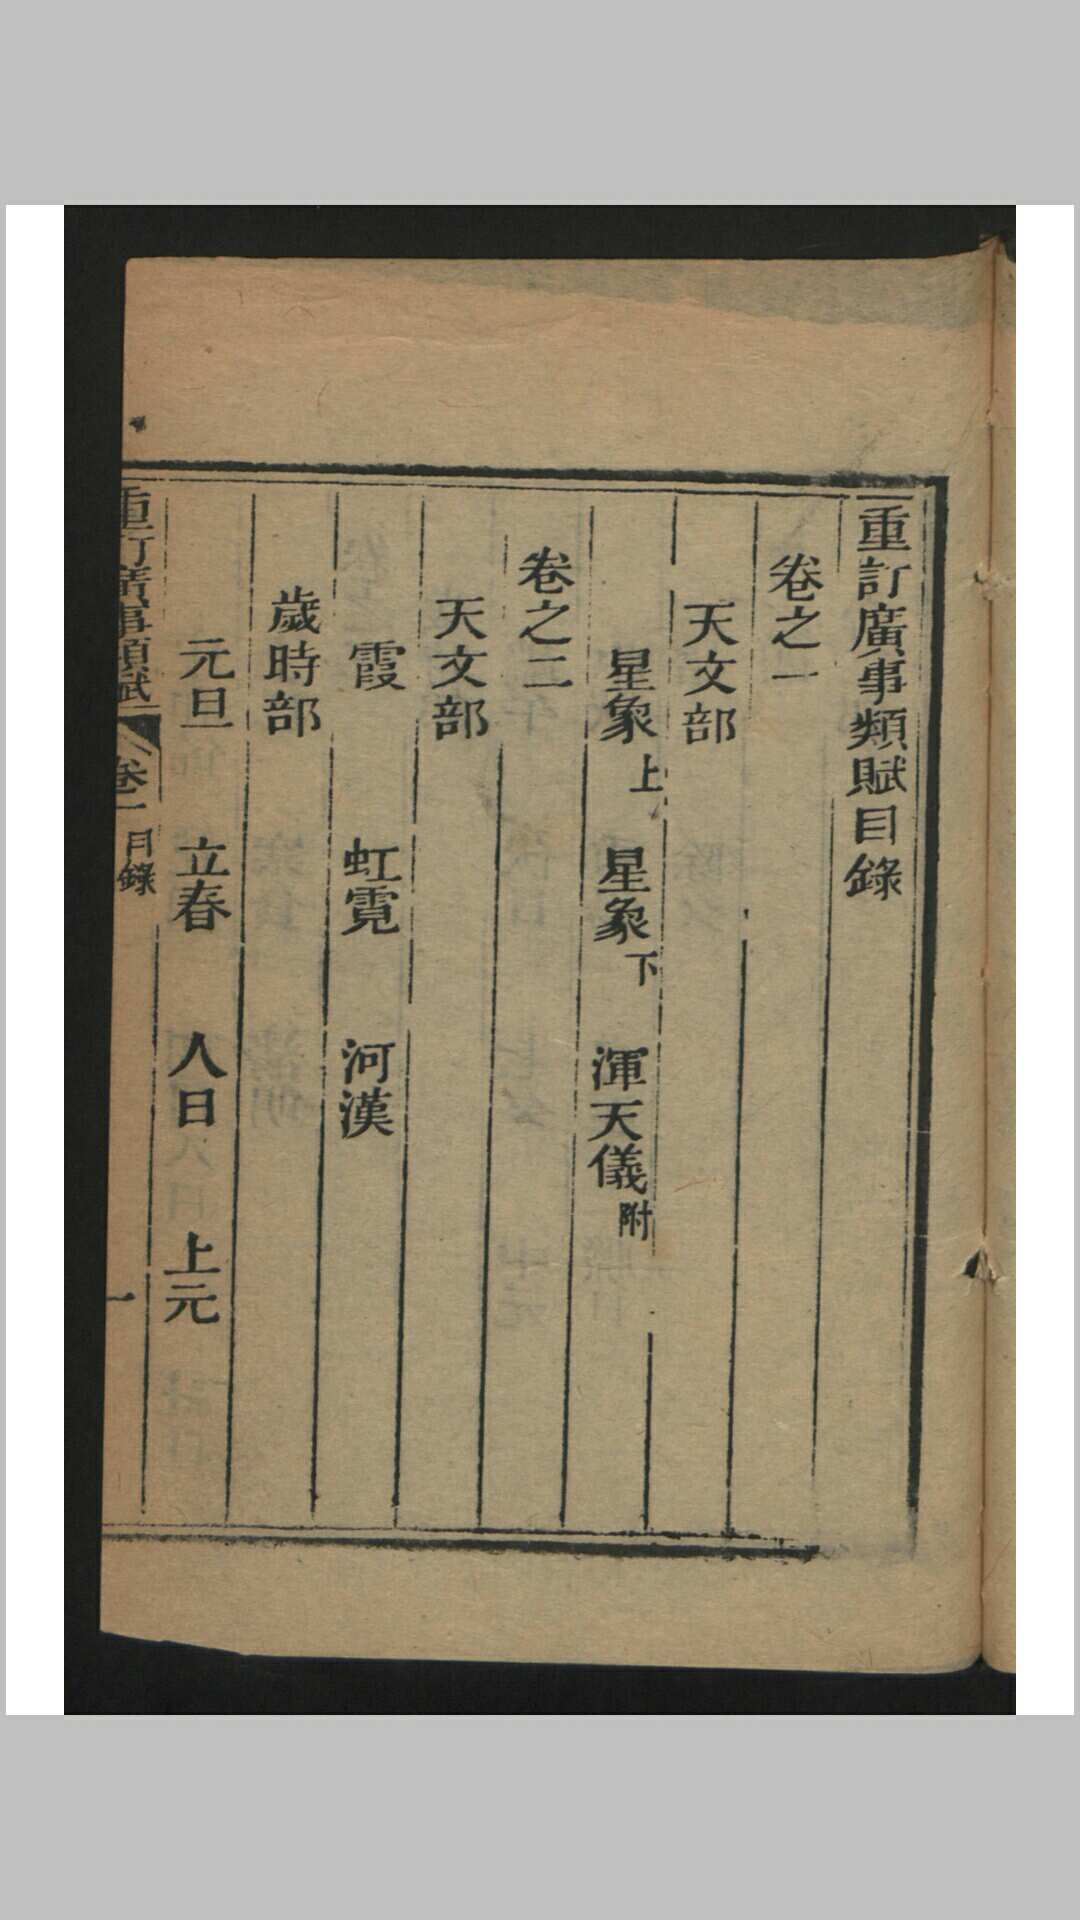 重訂廣事類賦目錄
卷之一
天文部
星象上 星象下 渾天儀附
卷之二
天文部
霞 虹霓 河漢
歲時部
元旦 立春 人日 上元
重訂廣事類賦 卷一 目錄 一